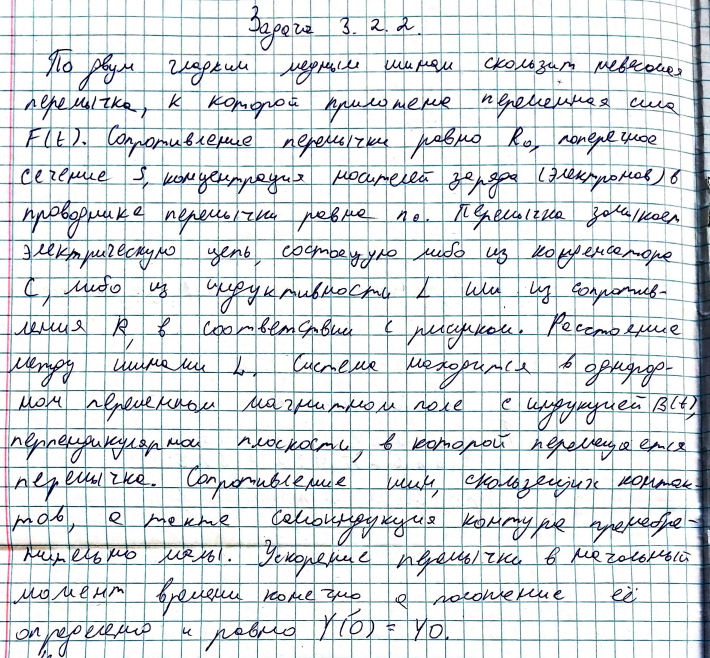 Задача 3.2.2.
По двум гладким медным шинам скользит невесомая
перемычка, к которой приложена переменная сила
F(t). Сопротивление перемычки равно R₀, поперечное
сечение S, концентрация носителей заряда (электронов) в
проводнике перемычки равна n₀. Перемычка замыкает
электрическую цепь, состоящую либо из конденсатора
C, либо из индуктивности L или из сопротив-
ления R, в соответствии с рисунком. Расстояние
между шинами L. Система находится в однород-
ном переменном магнитном поле с индукцией B(t),
перпендикулярном плоскости, в которой перемещается
перемычка. Сопротивление шин, скользящих контак-
тов, а также самоиндукция контура пренебре-
жительно малы. Ускорение перемычки в начальный
момент времени конечно а положение её
определено и равно Y(0) = Y0.